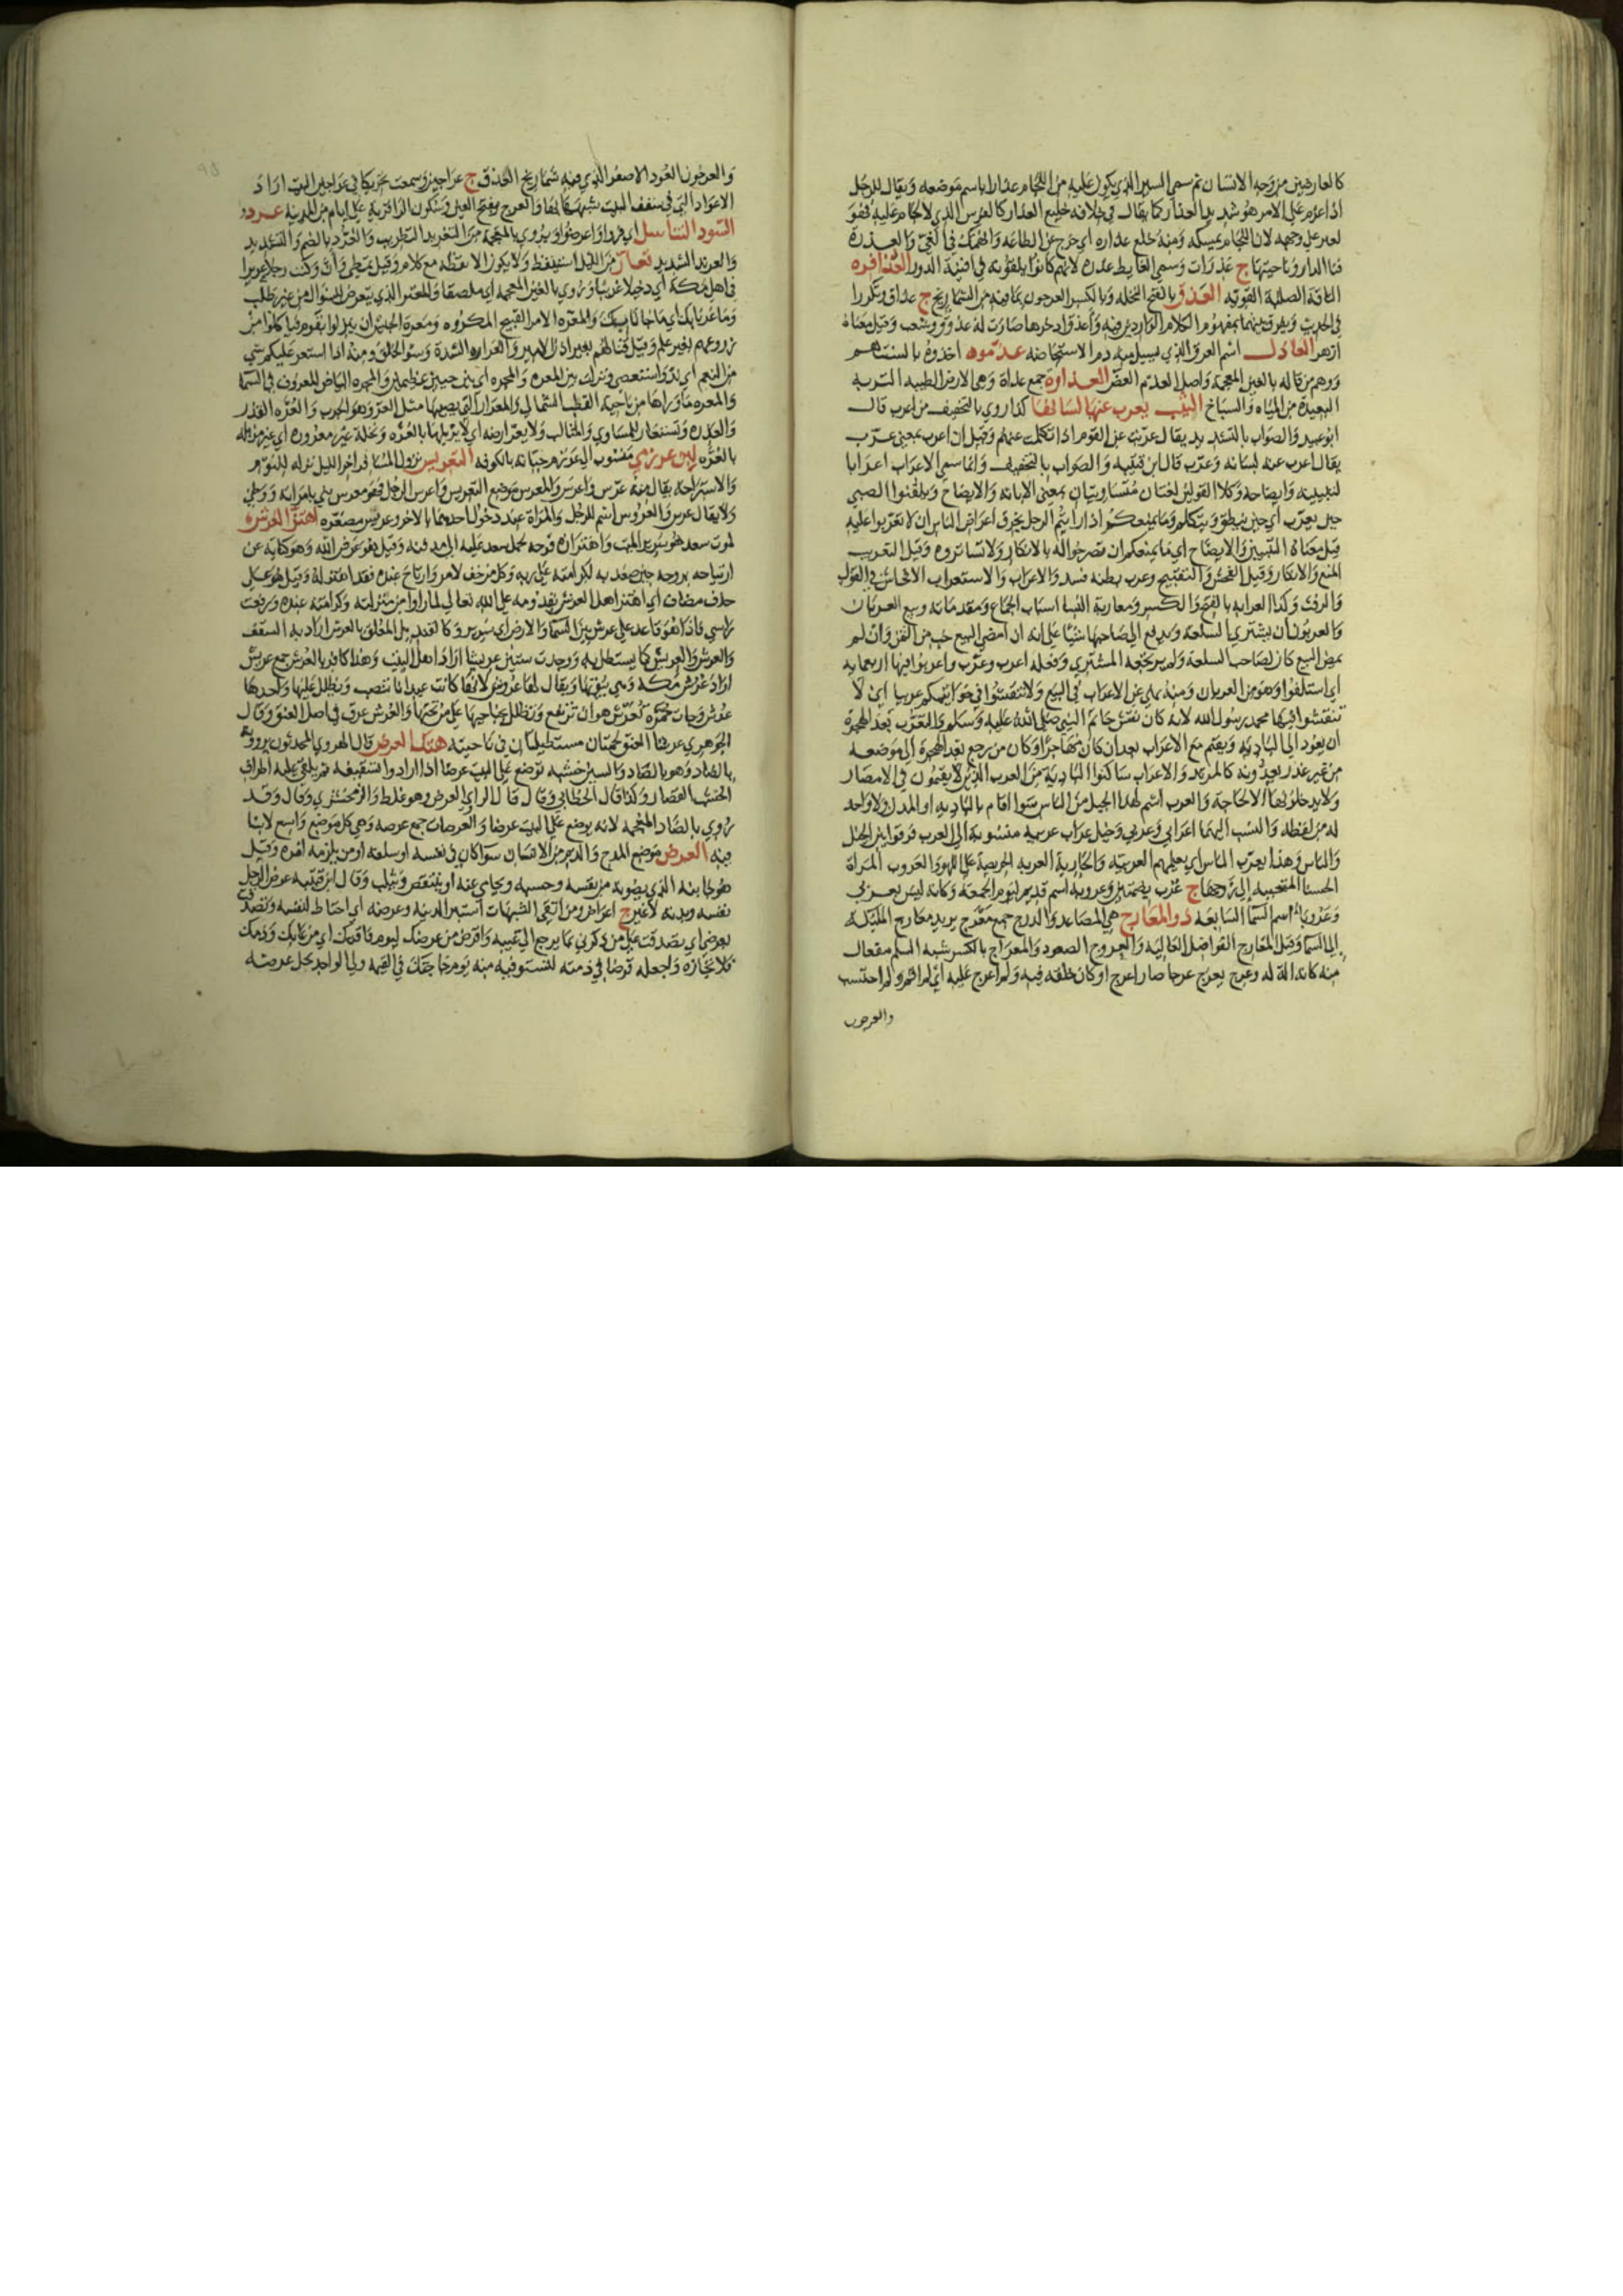 كالعارضين من وجه الانسان ثم سمي السير الذي يكون عليه من اللجام عذارا باسم موضعه ويقال للرجل
اذا عزم على الامر هو شديد العذار كما يقال في خلافه خليع العذار كالفرس الذي لا لجام عليه فهو
يعير على وجهه لان اللجام يمسكه ومنه خلع عذاره اي خرج عن الطاعه وانهمك في الغي والعذرة
فنا الدار وناحيتها ج عذرات وسمي الغايط عذره لانهم كانوا يلقونه في افنية الدور العذافره
الناقة الصلبة القويه العذق بالفتح النخله وبالكسر العرجون بما فيه من الشماريخ ج عذاق وتكررا
في الحديث ويفرق بينهما بمفهوم الكلام الوارد فيه واعذق اذخرها صارت له عذوق وشعب وقيل معناه
ازهر العاذل اسم العرق الذي يسيل منه دم الاستحاضه عذموه اخذوه بالسنتهم
ومنهم من قاله بالغين المعجمة واصل العذم العض العذاوة جمع عذاة وهي الارض الطيبه التربه
البعيدة من المياه والسباخ الثيب يعرب عنها لسانها كذا روي بالتخفيف من اعرب قال
ابو عبيد والصواب بالتشديد يقال عربت عن القوم اذا تكلمت عنهم وقيل ان اعرب بمعنى عرب
يقال اعرب عنه لسانه وعرب قال ابن قتيبه والصواب بالتخفيف وانما سمي الاعراب اعرابا
لتبيينه وايضاحه وكلا القولين لغتان متساويتان بمعنى الابانه والايضاح ويلقنوا الصبي
حين يعرب اي حين ينطق ويتكلم وما يمنعكم اذا رايتم الرجل يخرق اعراض الناس ان لا تعربوا عليه
قيل معناه التبيين والايضاح اي ما يمنعكم ان تصرحوا له بالانكار ولا تساتروه وقيل التعريب
المنع والانكار وقيل الفحش والتقبيح وعرب بطنه فسد والاعراب والاستعراب الافحاش في القول
والرفث وكذا العرابه بالفتح والكسر ومعاربة النسا اسباب الجماع ومقدماته وبيع العربان
والعربون ان يشتري السلعه ويدفع الى صاحبها شيا على انه ان امضي البيع حسب من الثمن وان لم
يمض البيع كان لصاحب السلعة ولم يرتجعه المشتري وفعله اعرب وعرب واعربوا فيها اربعمايه
اي استلفوا وهو من العربان ومنه نهي عن الاعراب في البيع ولا تنقشوا في خواتيمكم عربيا اي لا
تنقشوا فيها محمد رسول الله لانه كان نقش خاتم النبي صلى الله عليه وسلم والتعرب بعد الهجرة
ان يعود الى الباديه ويقيم مع الاعراب بعد ان كان مهاجرا وكان من رجع بعد الهجرة الى موضعه
من غير عذر يعدونه كالمرتد والاعراب ساكنوا البادية من العرب الذين لا يقيمون في الامصار
ولا يدخلونها الا لحاجة والعرب اسم لهذا الجيل من الناس سوا اقام بالباديه او المدن ولا واحد
له من لفظه والنسب اليهما اعرابي وعربي وخيل عراب عربيه منسوبة الى العرب فرقوا بين الخيل
والناس وهذا يعرب الناس اي يعلمهم العربيه والجارية العربه الحريصة على اللهو والعروب المراة
الحسنا المتحببه الى زوجها ج عرب بضمتين وعروبة اسم قديم ليوم الجمعة وكانه ليس بعربي
وعروبا اسم السما السابعه ذو المعارج هي المصاعد والدرج جمع معرج يريد معارج المليكه
الى السما وقيل المعارج الفواضل العاليه والعروج الصعود والمعراج بالكسر شبه السلم مفعال
منه كانه الة له وعرج يعرج عرجا صار اعرج او كان خلقه فيه ولم اعرج عليه اي لم اقم ولم احتبس
والعرجون
والعرجون العود الاصفر الذي فيه شماريخ العذق ج عراجين وسمعت تحريكا في عراجين البيت اراد
الاعواد التي في سقف البيت شبهها بها والعرج بفتح العين وسكون الرا قرية على ايام من المدينة عرد
السود التنابيل اي فروا واعرضوا ويروي بالمعجمة من التغريد التطريب والعرد بالضم والتشديد
والعرند الشديد تعار من الليل استيقظ ولا يكون الا يقظة مع كلام وقيل تمطي وان وكنت رجلا عريرا
في اهل مكة اي دخيلا غريبا وروي بالغين المعجمه اي ملصقا والمعتر الذي يتعرض للسؤال من غير طلب
وما عرنا بك اي ما جانا بك والمعره الامر القبيح المكروه ومعرة الجيش ان ينزلوا بقوم فياكلوا من
زروعهم بغير علم وقيل قتالهم بغير اذن الامير والعراره الشدة وسو الخلق ومنه اذا استعر عليكم شي
من النعم اي ند واستعصي ونزلت بين المعره والمجره اي بين حيين عظيمين والمجره البياض المعروف في السما
والمعره ما وراها من ناحية القطب الشمالي والمعرار التي يصيبها مثل العر وهو الجرب والعره القذر
والعذره وتستعار للمساوي والمثالب ولا يعر ارضه اي لا يزبلها بالعره ونخلة غير معرورة اي غير مزبله
بالعره لبن عرزمي منسوب الى عرزم جبانه بالكوفه التعريس نزول المسافر اخر الليل نزله للنوم
والاستراحة يقال منه عرس واعرس والمعرس موضع التعريس واعرس الرجل فهو معرس بني بامراته ووطئ
ولا يقال عرس والعروس اسم للرجل والمراة عند دخول احدهما بالاخر وعريس مصغره اهتز العرش
لموت سعد هو سرير الميت واهتزازه فرحه بحمل سعد عليه الى مدفنه وقيل هو عرش الله وهو كناية عن
ارتياحه بروحه حين صعد به لكرامته على ربه وكل من خف لامر وارتاح عنده فقد اهتز له وقيل هو على
حذف مضاف اي اهتز اهل العرش بقدومه على الله تعالى لما راوا من منزلته وكرامته عنده ورفعت
راسي فاذا هو قاعد على عرش بين السما والارض اي سرير وكالقنديل المعلق بالعرش اراد به السقف
والعرش والعريش كل ما يستظل به ووجدت ستين عريشا اراد اهل البيت وهذا كافر بالعرش جمع عريش
اراد عرش مكة وهي بيوتها ويقال لها عروش لانها كانت عيدانا تنصب ويظلل عليها واحدها
عرش وجات حمرة تعرش هو ان ترتفع وتظلل بجناحيها على من تحتها والعرش عرق في اصل العنق وقال
الجوهري عرشا العنق لحمتان مستطيلتان في ناحيته هتك العرض قال الهروي المحدثون يروونه
بالضاد وهو بالصاد والسين خشبه توضع على البيت عرضا اذا ارادوا تسقيفه ثم يلقي عليه اطراف
الخشب القصار وكذا قال الخطابي وقال قال الراوي العرض وهو غلط والزمخشري وقال وقد
روي بالضاد المعجمه لانه يوضع على البيت عرضا والعرصات جمع عرصه وهي كل موضع واسع لا بنا
فيه العرض موضع المدح والذم من الانسان سوا كان في نفسه او سلفه او من يلزمه امره وقيل
هو جانبه الذي يصونه من نفسه وحسبه ويحامي عنه ان ينتقص ويثلب وقال ابن قتيبه عرض الرجل
نفسه وبدنه لا غير ج اعراض ومن اتقى الشبهات استبرا لدينه وعرضه اي احتاط لنفسه وتصدق
بعرضي اي تصدقت على من ذكرني بما يرجع الى عيبه واقرض من عرضك ليوم فاقتك اي من عابك وذمك
فلا تجازه واجعله قرضا في ذمته لتستوفيه منه يوم حاجتك في القيمه ولي الواجد يحل عرضه